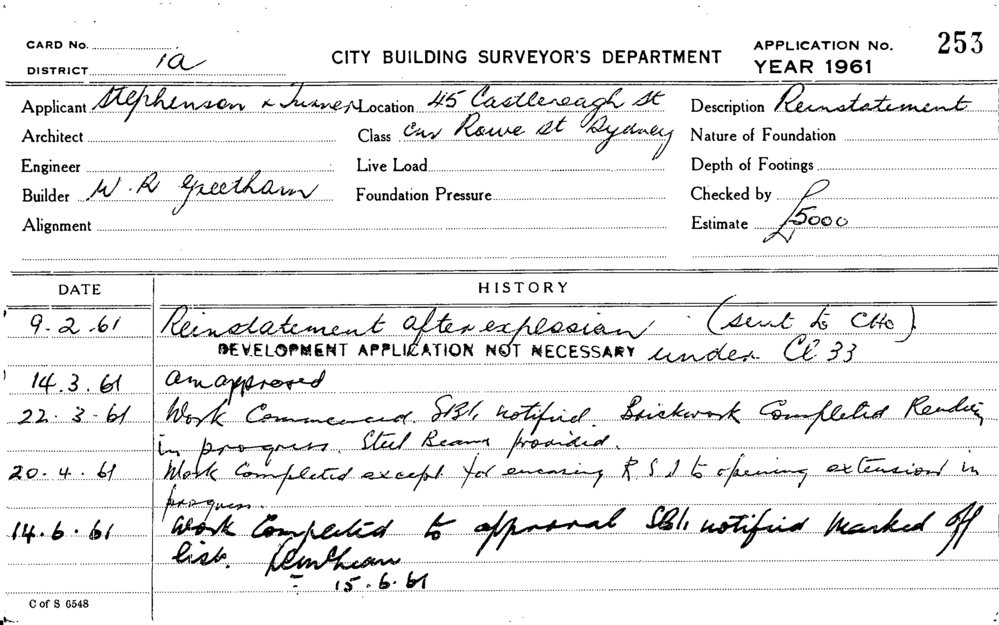 CARD No.
DISTRICT 1a
CITY BUILDING SURVEYOR'S DEPARTMENT
APPLICATION No. 253
YEAR 1961
Applicant Stephenson & Turner Location 45 Castlereagh St Description Reinstatement
Architect Class Cnr Rowe St Sydney Nature of Foundation
Engineer Live Load Depth of Footings
Builder W. R Greetham Foundation Pressure Checked by
Alignment Estimate £5000
DATE HISTORY
9.2.61 Reinstatement after explosion (sent to CHO)
DEVELOPMENT APPLICATION NOT NECESSARY under Cl 33
14.3.61 approved
22.3.61 Work Commenced. SBI. notified. Brickwork Completed Rendering
in progress. Steel Beams provided.
20.4.61 Work Completed except for encasing R S J to opening extension in
progress.
14.6.61 Work Completed to approval SBI. notified Marked off
list.
15.6.61
C of S 6548